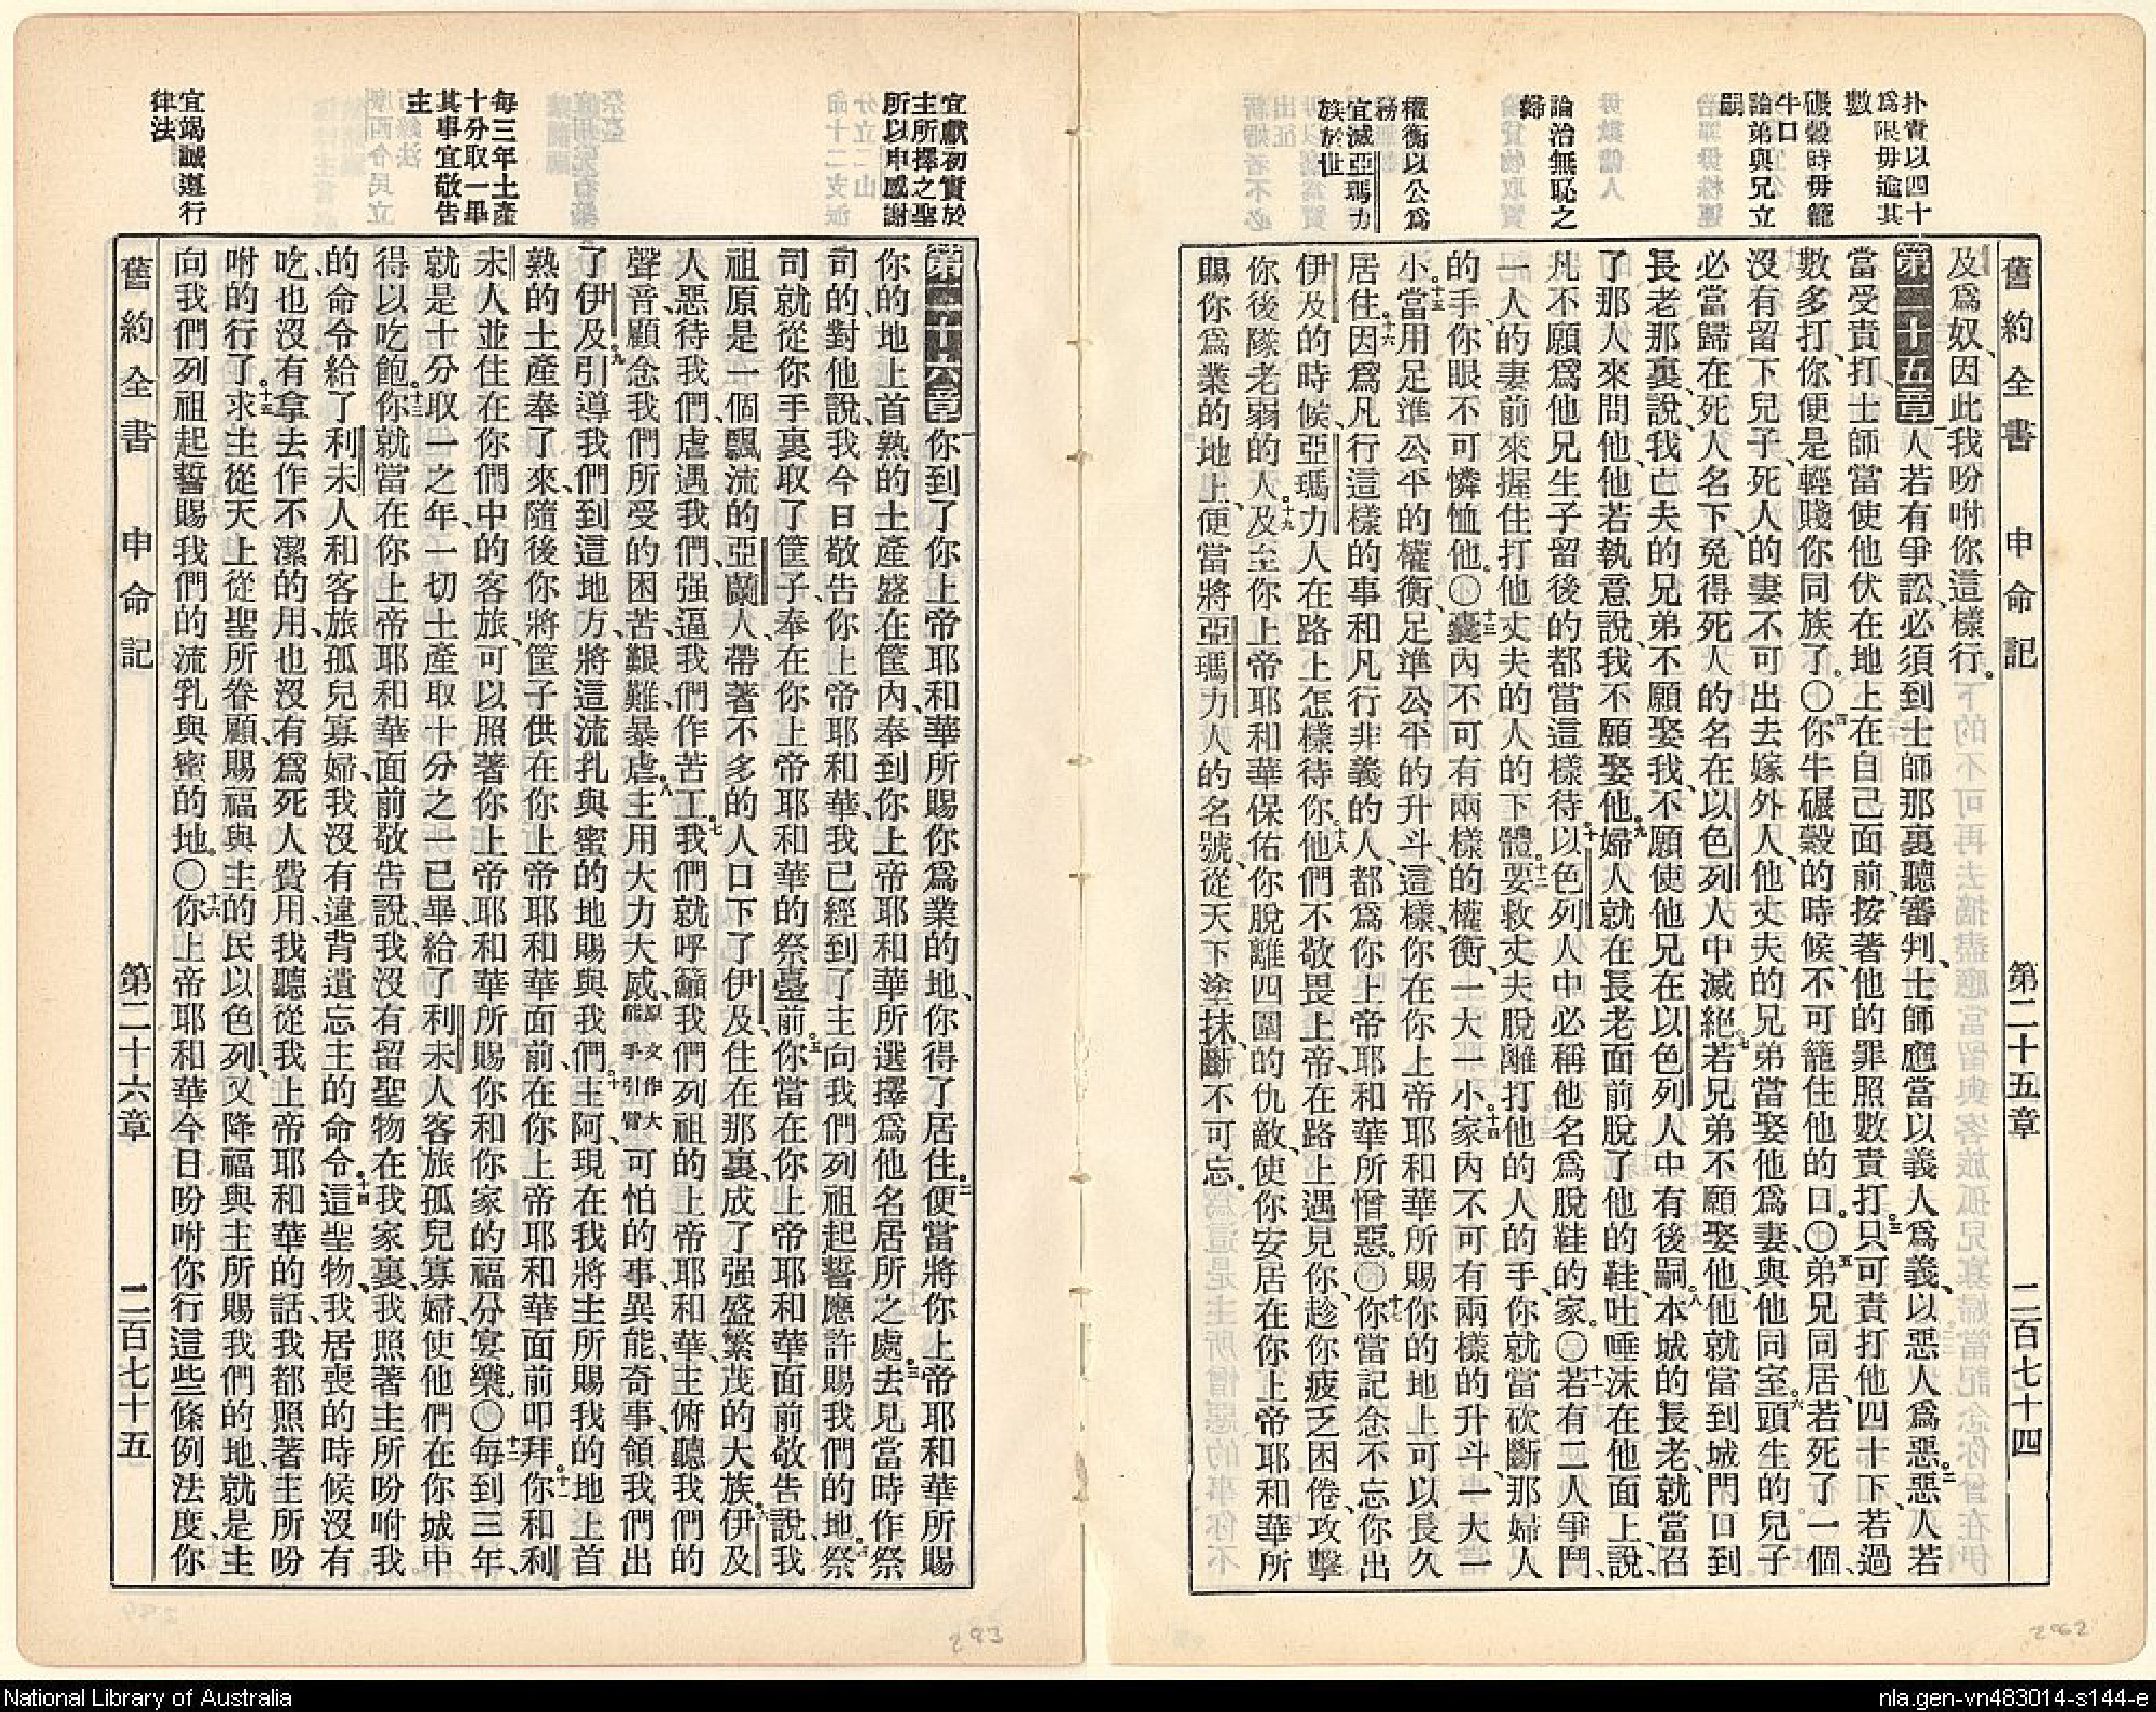 舊約全書 申命記 第二十五章 二百七十四
扑責以四十
爲限毋逾其
數
碾穀時毋籠
牛口
論弟與兄立
嗣
論治無恥之
婦
權衡以公爲
務
宜滅亞瑪力
族於世
及爲奴、因此我吩咐你這樣行。
第二十五章 一人若有爭訟、必須到士師那裏聽審判、士師應當以義人爲義、以惡人爲惡。二惡人若
當受責打、士師當使他伏在地上在自己面前、按著他的罪照數責打。三只可責打他四十下、若過
數多打、你便是輕賤你同族了。〇四你牛碾穀的時候、不可籠住他的口。〇五弟兄同居、若死了一個、
沒有留下兒子、死人的妻不可出去嫁外人、他丈夫的兄弟當娶他爲妻、與他同室。六頭生的兒子
必當歸在死人名下、免得死人的名在以色列人中滅絕。七若兄弟不願娶他、他就當到城門口到
長老那裏、說、我亡夫的兄弟不願娶我、不願使他兄在以色列人中有後嗣。八本城的長老、就當召
了那人來問他、他若執意說、我不願娶他。九婦人就在長老面前脫了他的鞋、吐唾沫在他面上、說、
凡不願爲他兄生子留後的、都當這樣待。十以色列人中必稱他名爲脫鞋的家。〇十一若有二人爭鬥、
一人的妻前來握住打他丈夫的人的下體。十二要救丈夫脫離打他的人的手、你就當砍斷那婦人
的手、你眼不可憐恤他。〇十三囊內不可有兩樣的權衡、一大一小。十四家內不可有兩樣的升斗、一大一
小。十五當用足準公平的權衡、足準公平的升斗、這樣、你在你上帝耶和華所賜你的地上可以長久
居住。十六因爲凡行這樣的事和凡行非義的人、都爲你上帝耶和華所憎惡。〇十七你當記念不忘你出
伊及的時候、亞瑪力人在路上怎樣待你。十八他們不敬畏上帝、在路上遇見你、趁你疲乏困倦、攻擊
你後隊老弱的人。十九及至你上帝耶和華保佑你脫離四圍的仇敵、使你安居在你上帝耶和華所
賜你爲業的地上、便當將亞瑪力人的名號、從天下塗抹、斷不可忘。
宜獻初實於
主所擇之聖
所以申感謝
每三年土產
十分取一畢
其事宜敬告
主
宜竭誠遵行
律法
第二十六章 一你到了你上帝耶和華所賜你爲業的地、你得了居住。二便當將你上帝耶和華所賜
你的地上首熟的土產盛在筐內、奉到你上帝耶和華所選擇爲他名居所之處。三去見當時作祭
司的、對他說、我今日敬告你上帝耶和華、我已經到了主向我們列祖起誓應許賜我們的地。四祭
司就從你手裏取了筐子、奉在你上帝耶和華的祭臺前。五你當在你上帝耶和華面前敬告說、我
祖原是一個飄流的亞蘭人、帶著不多的人口下了伊及、住在那裏、成了强盛繁茂的大族。六伊及
人惡待我們、虐遇我們、强逼我們作苦工。七我們就呼籲我們列祖的上帝耶和華、主俯聽我們的
聲音、顧念我們所受的困苦、艱難、暴虐。八主用大力大威、原文作大能手引臂可怕的事、異能、奇事、領我們出
了伊及。九引導我們到這地方、將這流乳與蜜的地賜與我們。十主阿、現在我將主所賜我的地上首
熟的土產奉了來、隨後你將筐子供在你上帝耶和華面前、在你上帝耶和華面前叩拜。十一你和利
未人並住在你們中的客旅、可以照著你上帝耶和華所賜你和你家的福分宴樂。〇十二每到三年、
就是十分取一之年、一切土產取十分之一已畢、給了利未人客旅孤兒寡婦、使他們在你城中
得以吃飽。十三你就當在你上帝耶和華面前敬告說、我沒有留聖物在我家裏、我照著主所吩咐我
的命令給了利未人和客旅孤兒寡婦、我沒有違背遺忘主的命令。十四這聖物、我居喪的時候沒有
吃、也沒有拿去作不潔的用、也沒有爲死人費用、我聽從我上帝耶和華的話、我都照著主所吩
咐的行了。十五求主從天上從聖所眷顧、賜福與主的民以色列、又降福與主所賜我們的地、就是主
向我們列祖起誓賜我們的流乳與蜜的地。〇十六你上帝耶和華今日吩咐你行這些條例法度、你
舊約全書 申命記 第二十六章 二百七十五
293
262
National Library of Australia
nla.gen-vn483014-s144-e